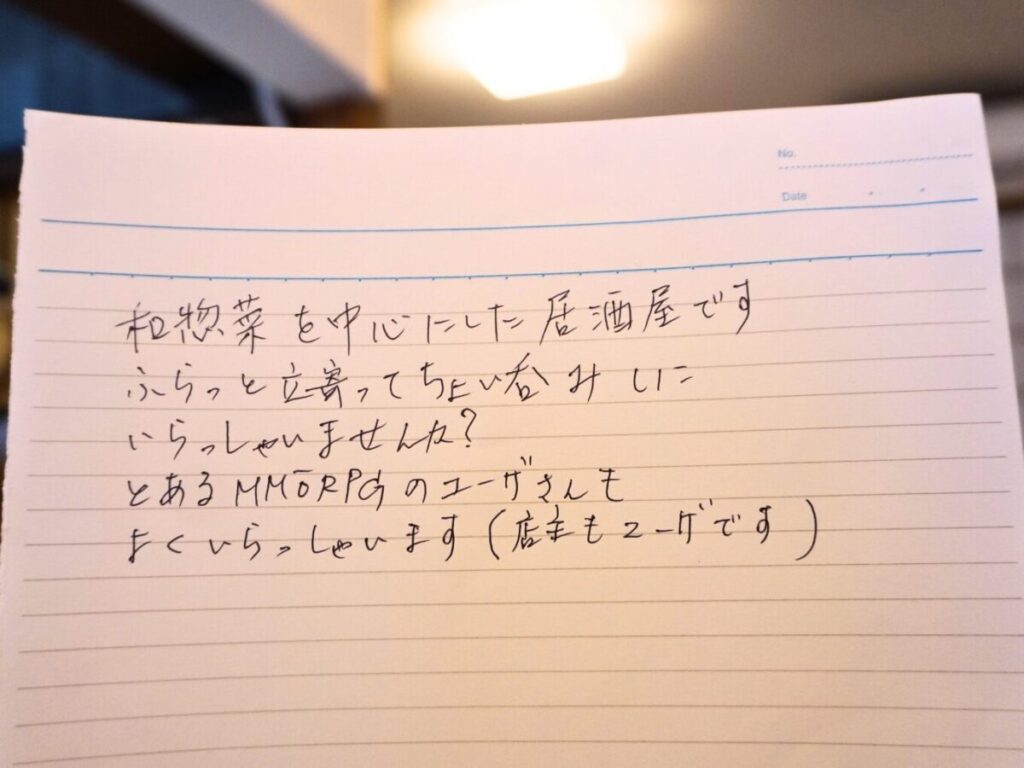 No.
Date
和惣菜を中心にした居酒屋です
ふらっと立寄ってちょい呑みしに
いらっしゃいませんか?
とあるMMORPGのユーザさんも
よくいらっしゃいます(店主もユーザです)